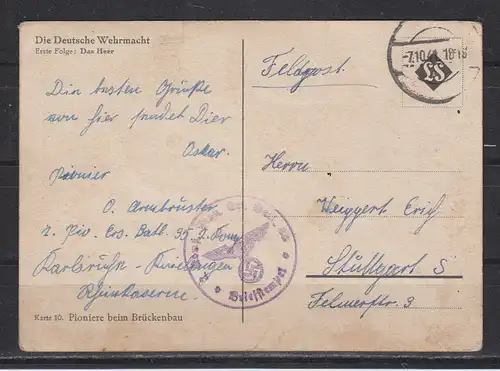 Die Deutsche Wehrmacht
Erste Folge: Das Heer
Die besten Grüße
von hier sendet Dier
Oskar.
Pionier
O. Armbrüster
2. Pio. Ers. Batl. 35 2. Komp
Karlsruhe-Knielingen
Rheinkaserne
Karte 10. Pioniere beim Brückenbau
Briefstempel
Feldpost.
-7.10
Herrn
Weiggert Erich
Stuttgart S
3